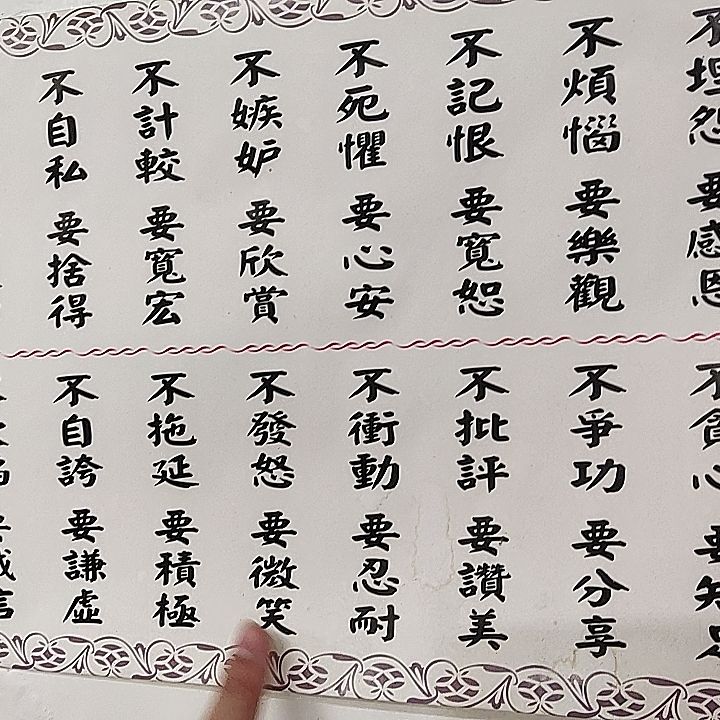 不埋怨 要感恩
不煩惱 要樂觀
不記恨 要寬恕
不死懼 要心安
不嫉妒 要欣賞
不計較 要寬宏
不自私 要捨得
不貪心 要知足
不爭功 要分享
不批評 要讚美
不衝動 要忍耐
不發怒 要微笑
不拖延 要積極
不自誇 要謙虛